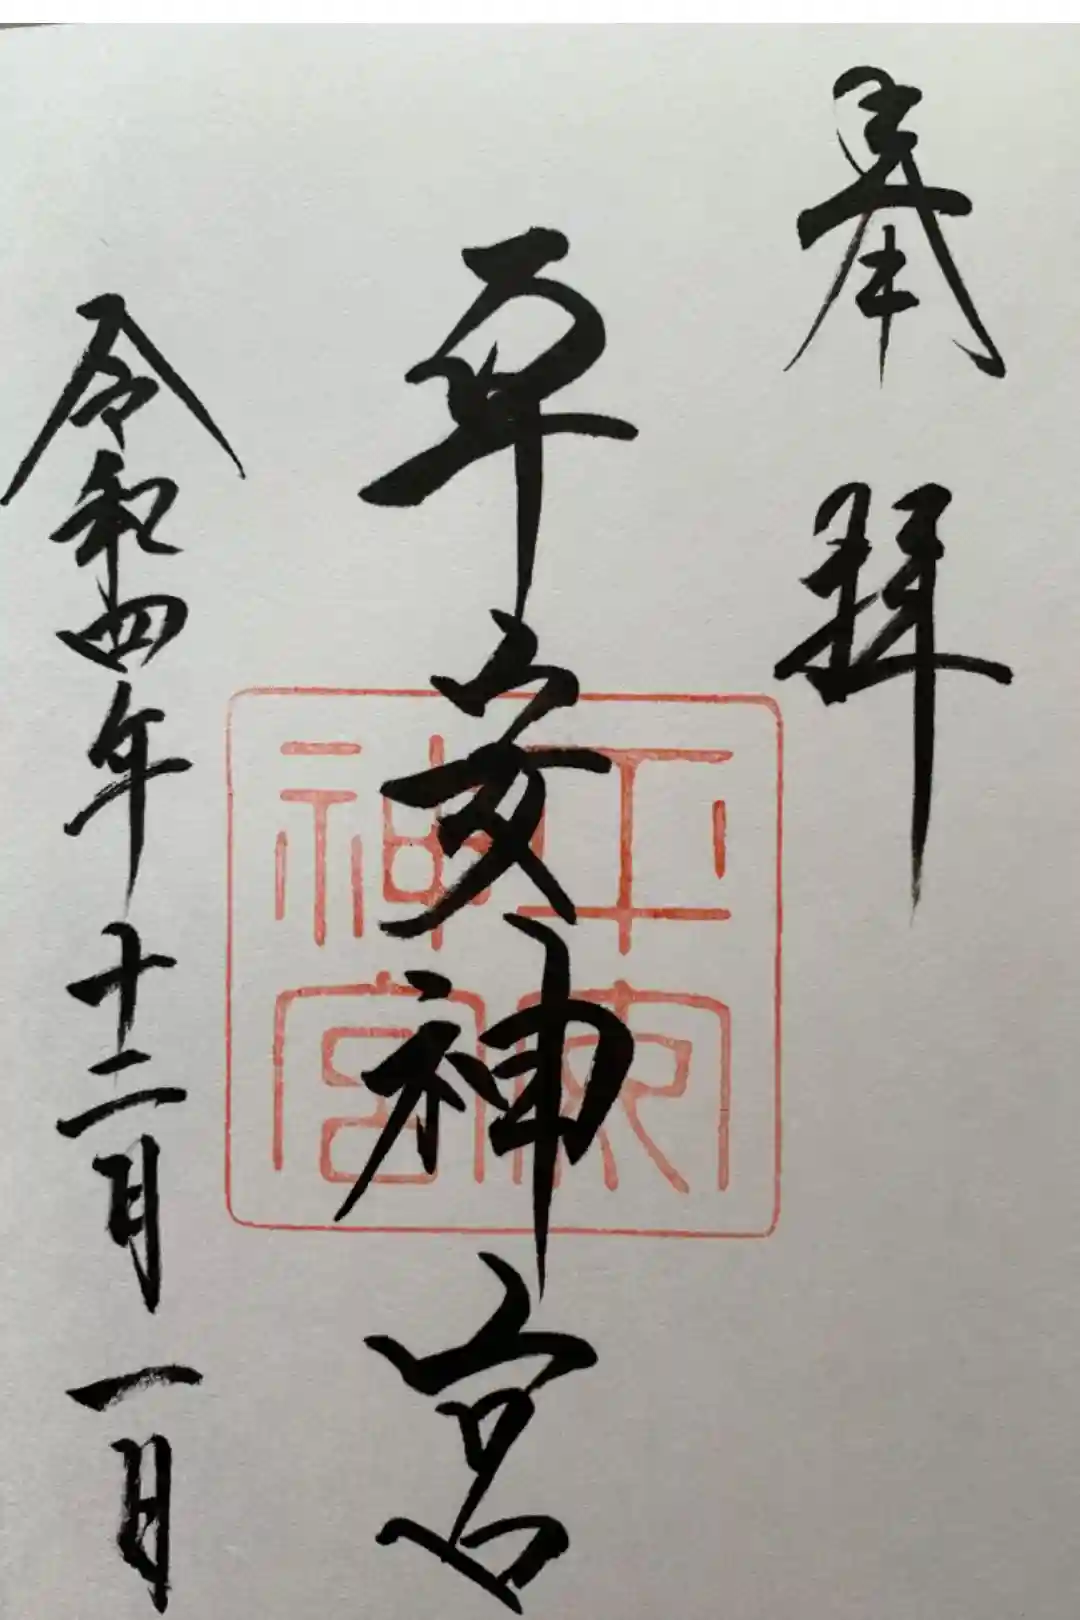 奉拝
平安神宮
平安神宮
令和四年十二月一日